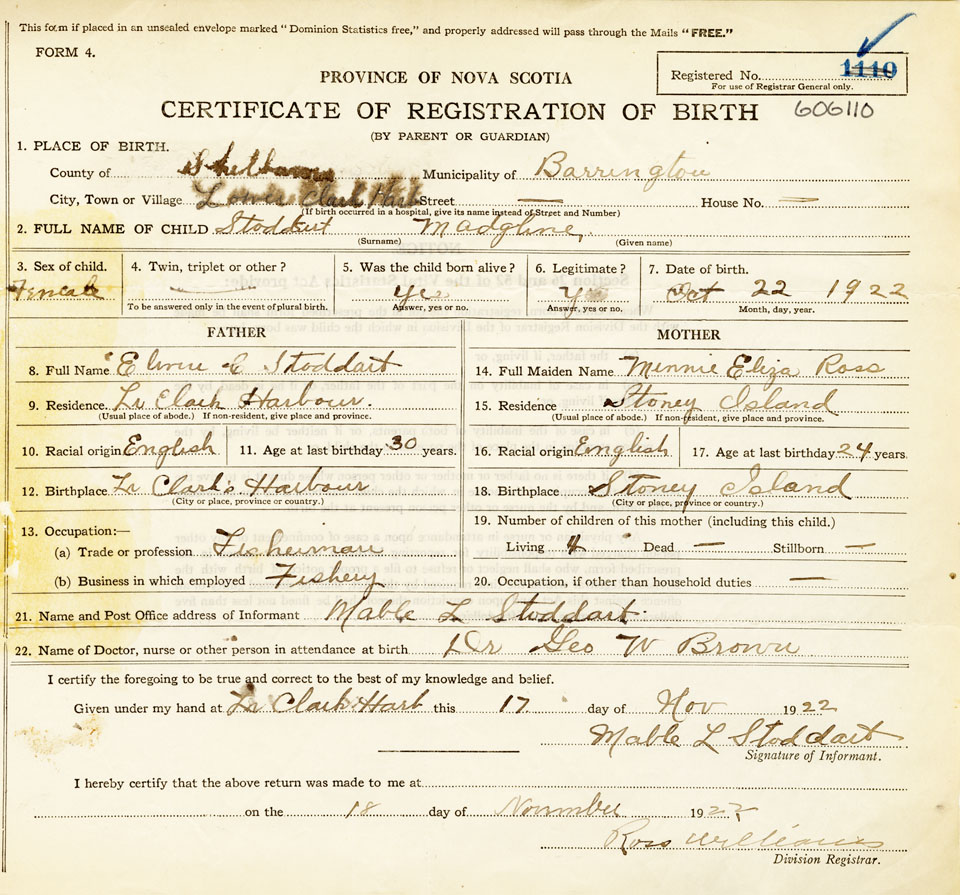 This form if placed in an unsealed envelope marked "Dominion Statistics free," and properly addressed will pass through the Mails "FREE."
FORM 4.
1110
Registered No.
For use of Registrar General only.
PROVINCE OF NOVA SCOTIA
CERTIFICATE OF REGISTRATION OF BIRTH 606110
(BY PARENT OR GUARDIAN)
1. PLACE OF BIRTH.
County of Shelburne Municipality of Barrington
City, Town or Village Lower Clark Harb Street — House No. —
(If birth occurred in a hospital, give its name instead of Street and Number)
2. FULL NAME OF CHILD Stoddart Madgline,
(Surname) (Given name)
3. Sex of child. 4. Twin, triplet or other? 5. Was the child born alive? 6. Legitimate? 7. Date of birth.
Female — yes yes Oct 22 1922
To be answered only in the event of plural birth. Answer, yes or no. Answer, yes or no. Month, day, year.
FATHER
8. Full Name E Stoddart
9. Residence Lr Clark Harbour.
(Usual place of abode.) If non-resident, give place and province.
10. Racial origin English 11. Age at last birthday 30 years.
12. Birthplace Lr Clarks Harbour
(City or place, province or country.)
13. Occupation:—
(a) Trade or profession Fisherman
(b) Business in which employed Fishery
MOTHER
14. Full Maiden Name Minnie Eliza Ross
15. Residence Stoney Island
(Usual place of abode.) If non-resident, give place and province.
16. Racial origin English 17. Age at last birthday 24 years.
18. Birthplace Stoney Island
(City or place, province or country.)
19. Number of children of this mother (including this child.)
Living 4 Dead — Stillborn —
20. Occupation, if other than household duties —
21. Name and Post Office address of Informant Mable L Stoddart
22. Name of Doctor, nurse or other person in attendance at birth Dr Geo W Brown
I certify the foregoing to be true and correct to the best of my knowledge and belief.
Given under my hand at Lr Clark Harb this 17 day of Nov 1922
Mable L Stoddart
Signature of Informant.
I hereby certify that the above return was made to me at
on the 18 day of November 1922
Ross Williams
Division Registrar.